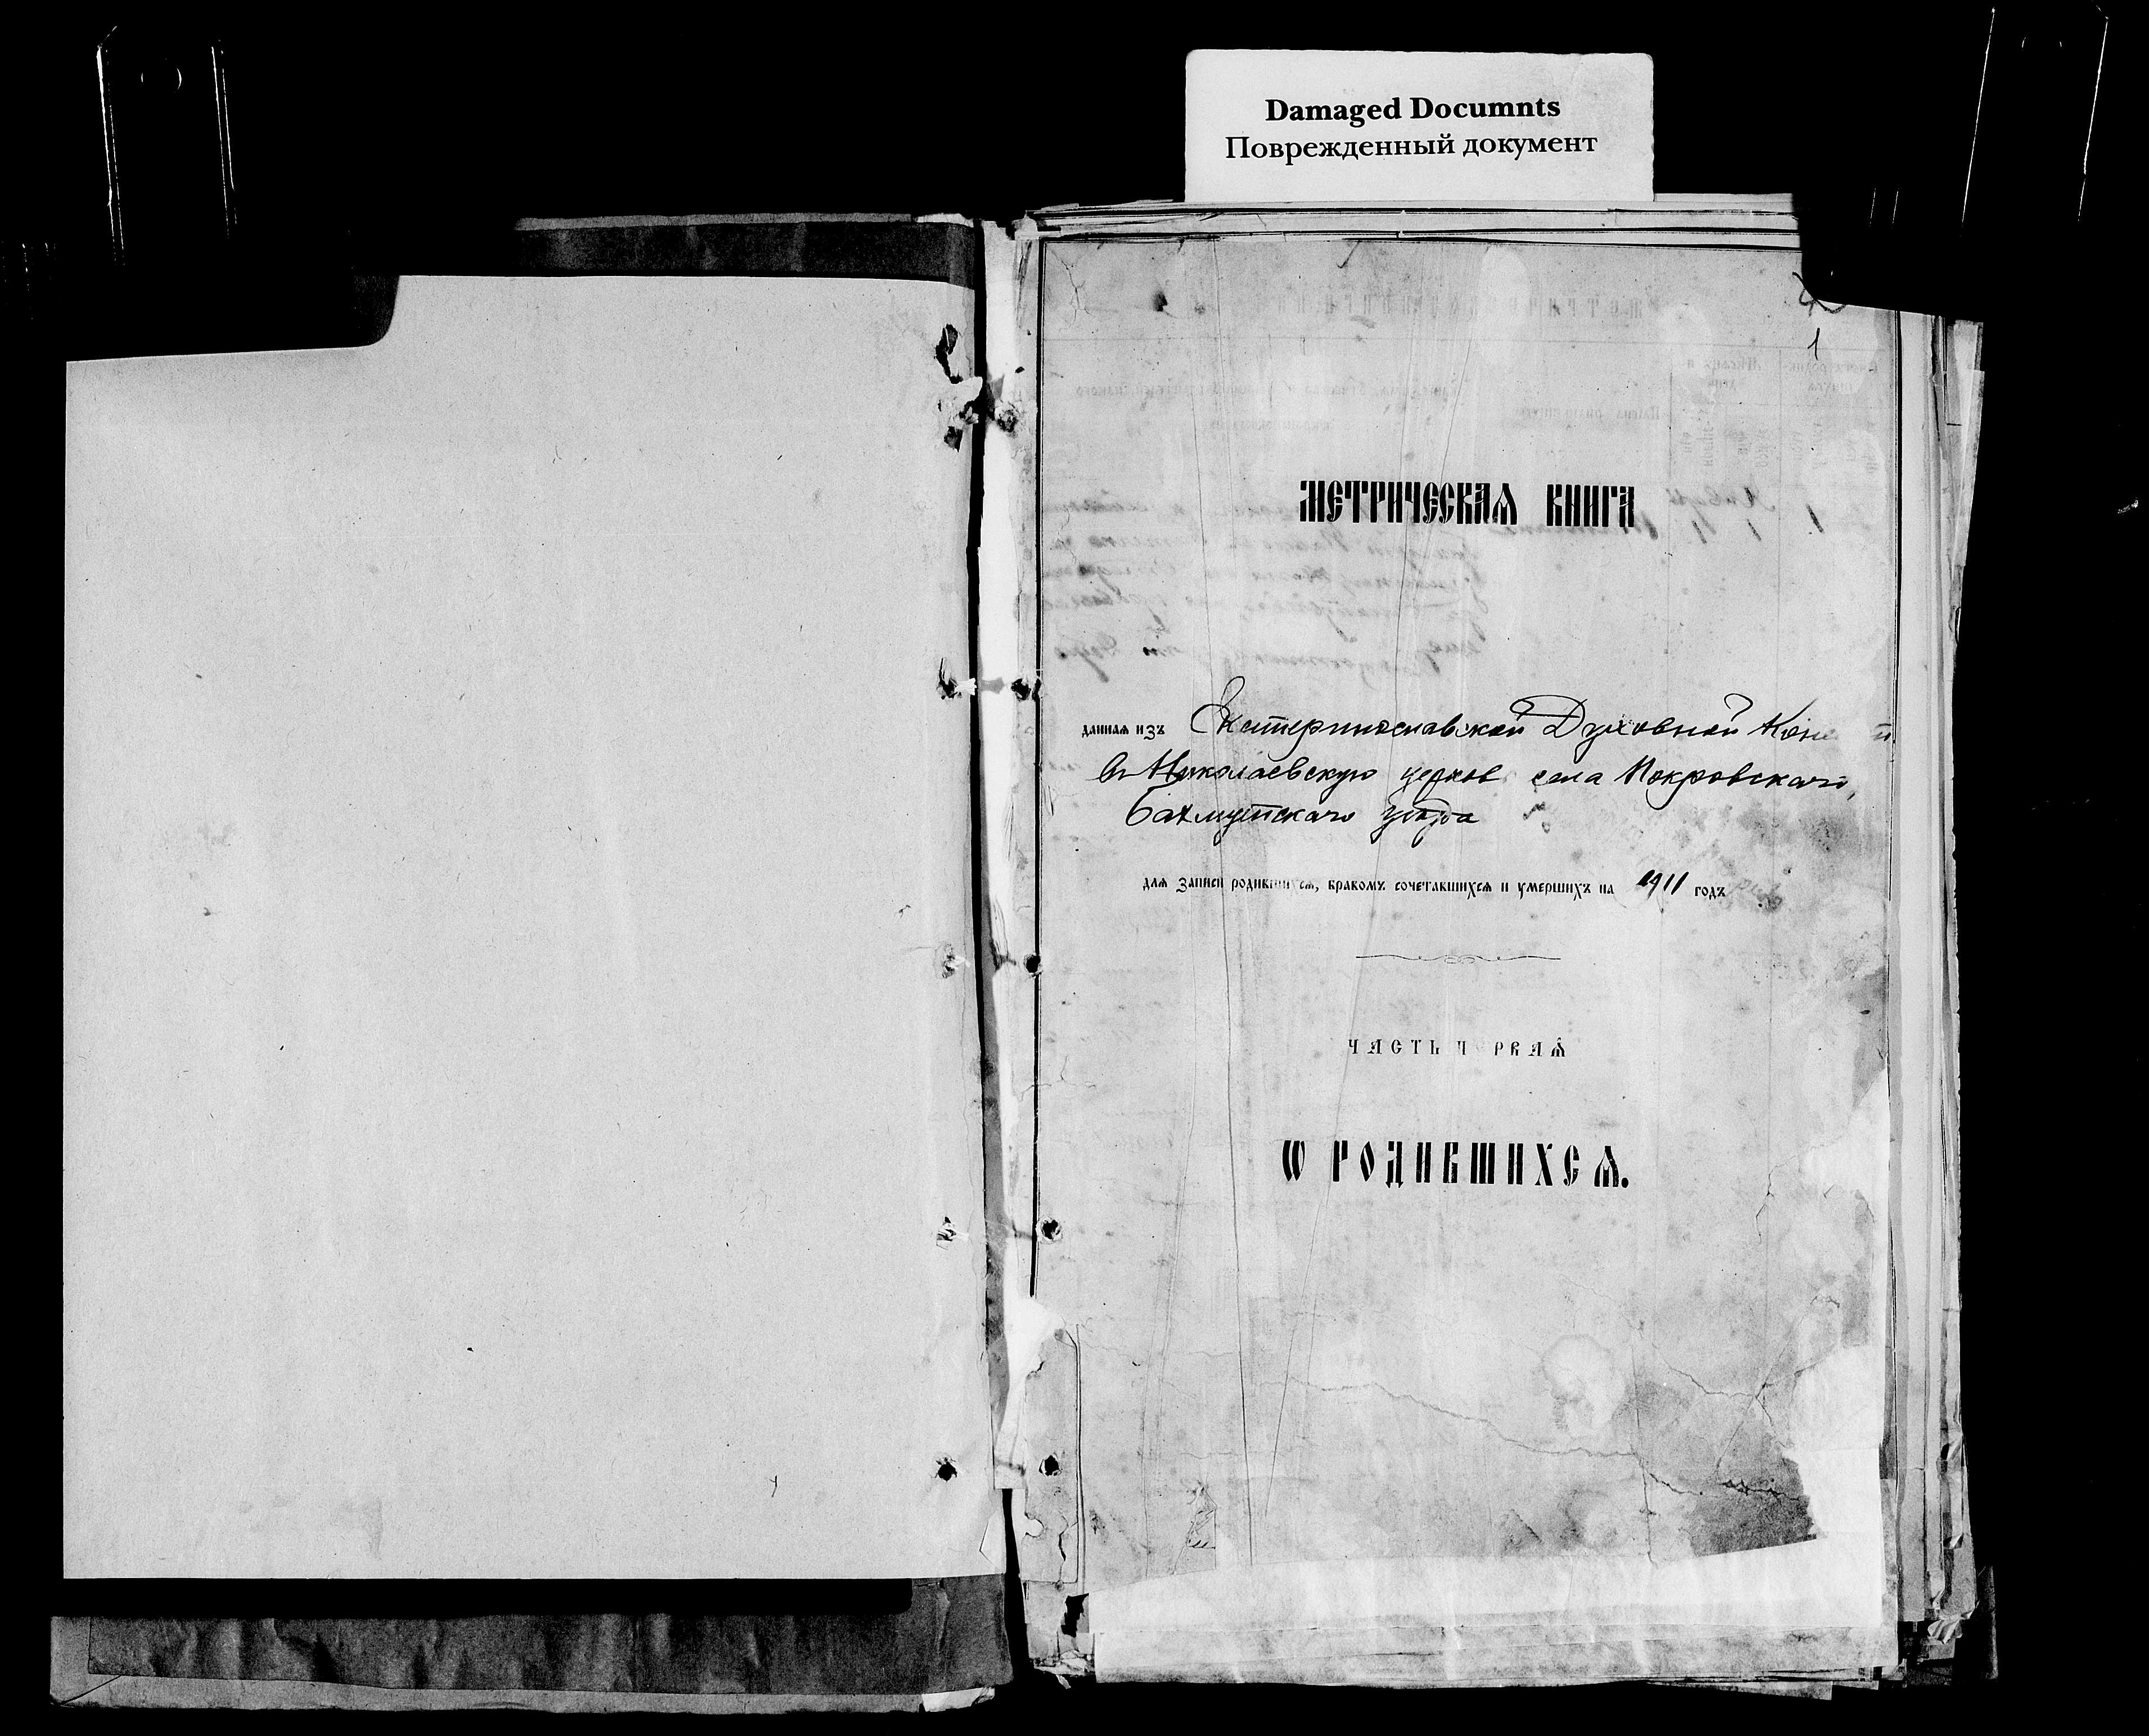 Damaged Documnts
Поврежденный документ
1
МЕТРИЧЕСКАѦ КНИГА
даннаѧ изъ Екатеринославской Духовной
въ Николаевскую церковь села Покровскаго,
Бахмутскаго уѣзда
для записи родившихсѧ, бракомъ сочетавшихсѧ и умершихъ на 1911 годъ
ЧАСТЬ П РВАѦ
Ѡ РОДИВШИХСѦ.